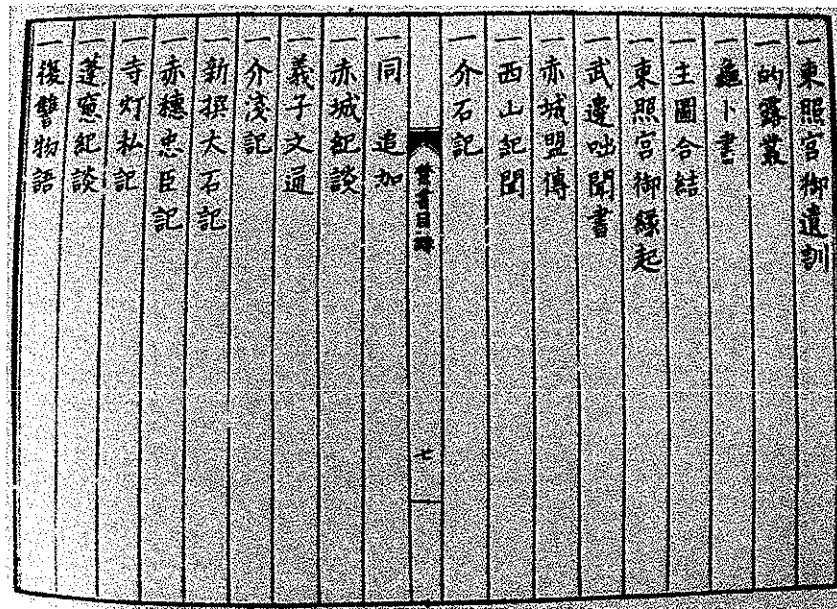 一東照宮御遺訓
一的露叢
一亀卜書
一主圖合結
一東照宮御緣起
一武邊咄聞書
一赤城盟傳
一西山紀聞
一介石記
書目
七
一同 追加
一赤城紀談
一義子文通
一介淺記
一新撰大石記
一赤穗忠臣記
一寺灯私記
一蓬窓紀談
一復讐物語